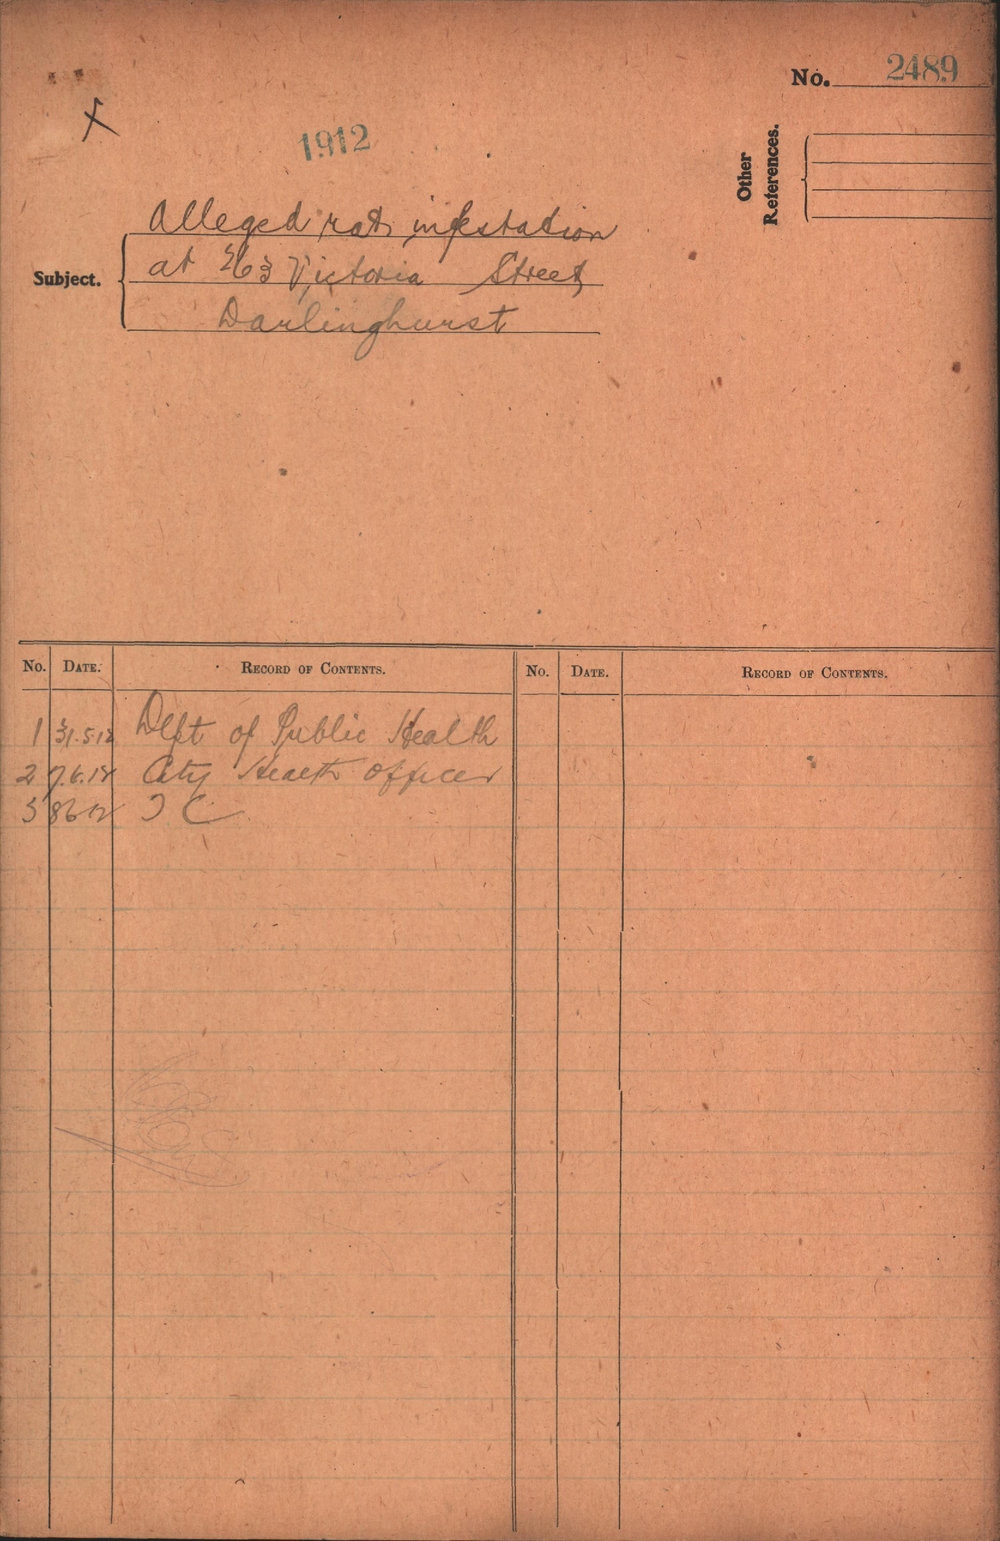 No. 2489
1912
Other References.
Subject.
Alleged rat infestation
at 263 Victoria Street
Darlinghurst
No. DATE. RECORD OF CONTENTS. No. DATE. RECORD OF CONTENTS.
1 31.5.12 Dept of Public Health
2 7.6.12 City Health Officer
3 8 6 12 T C